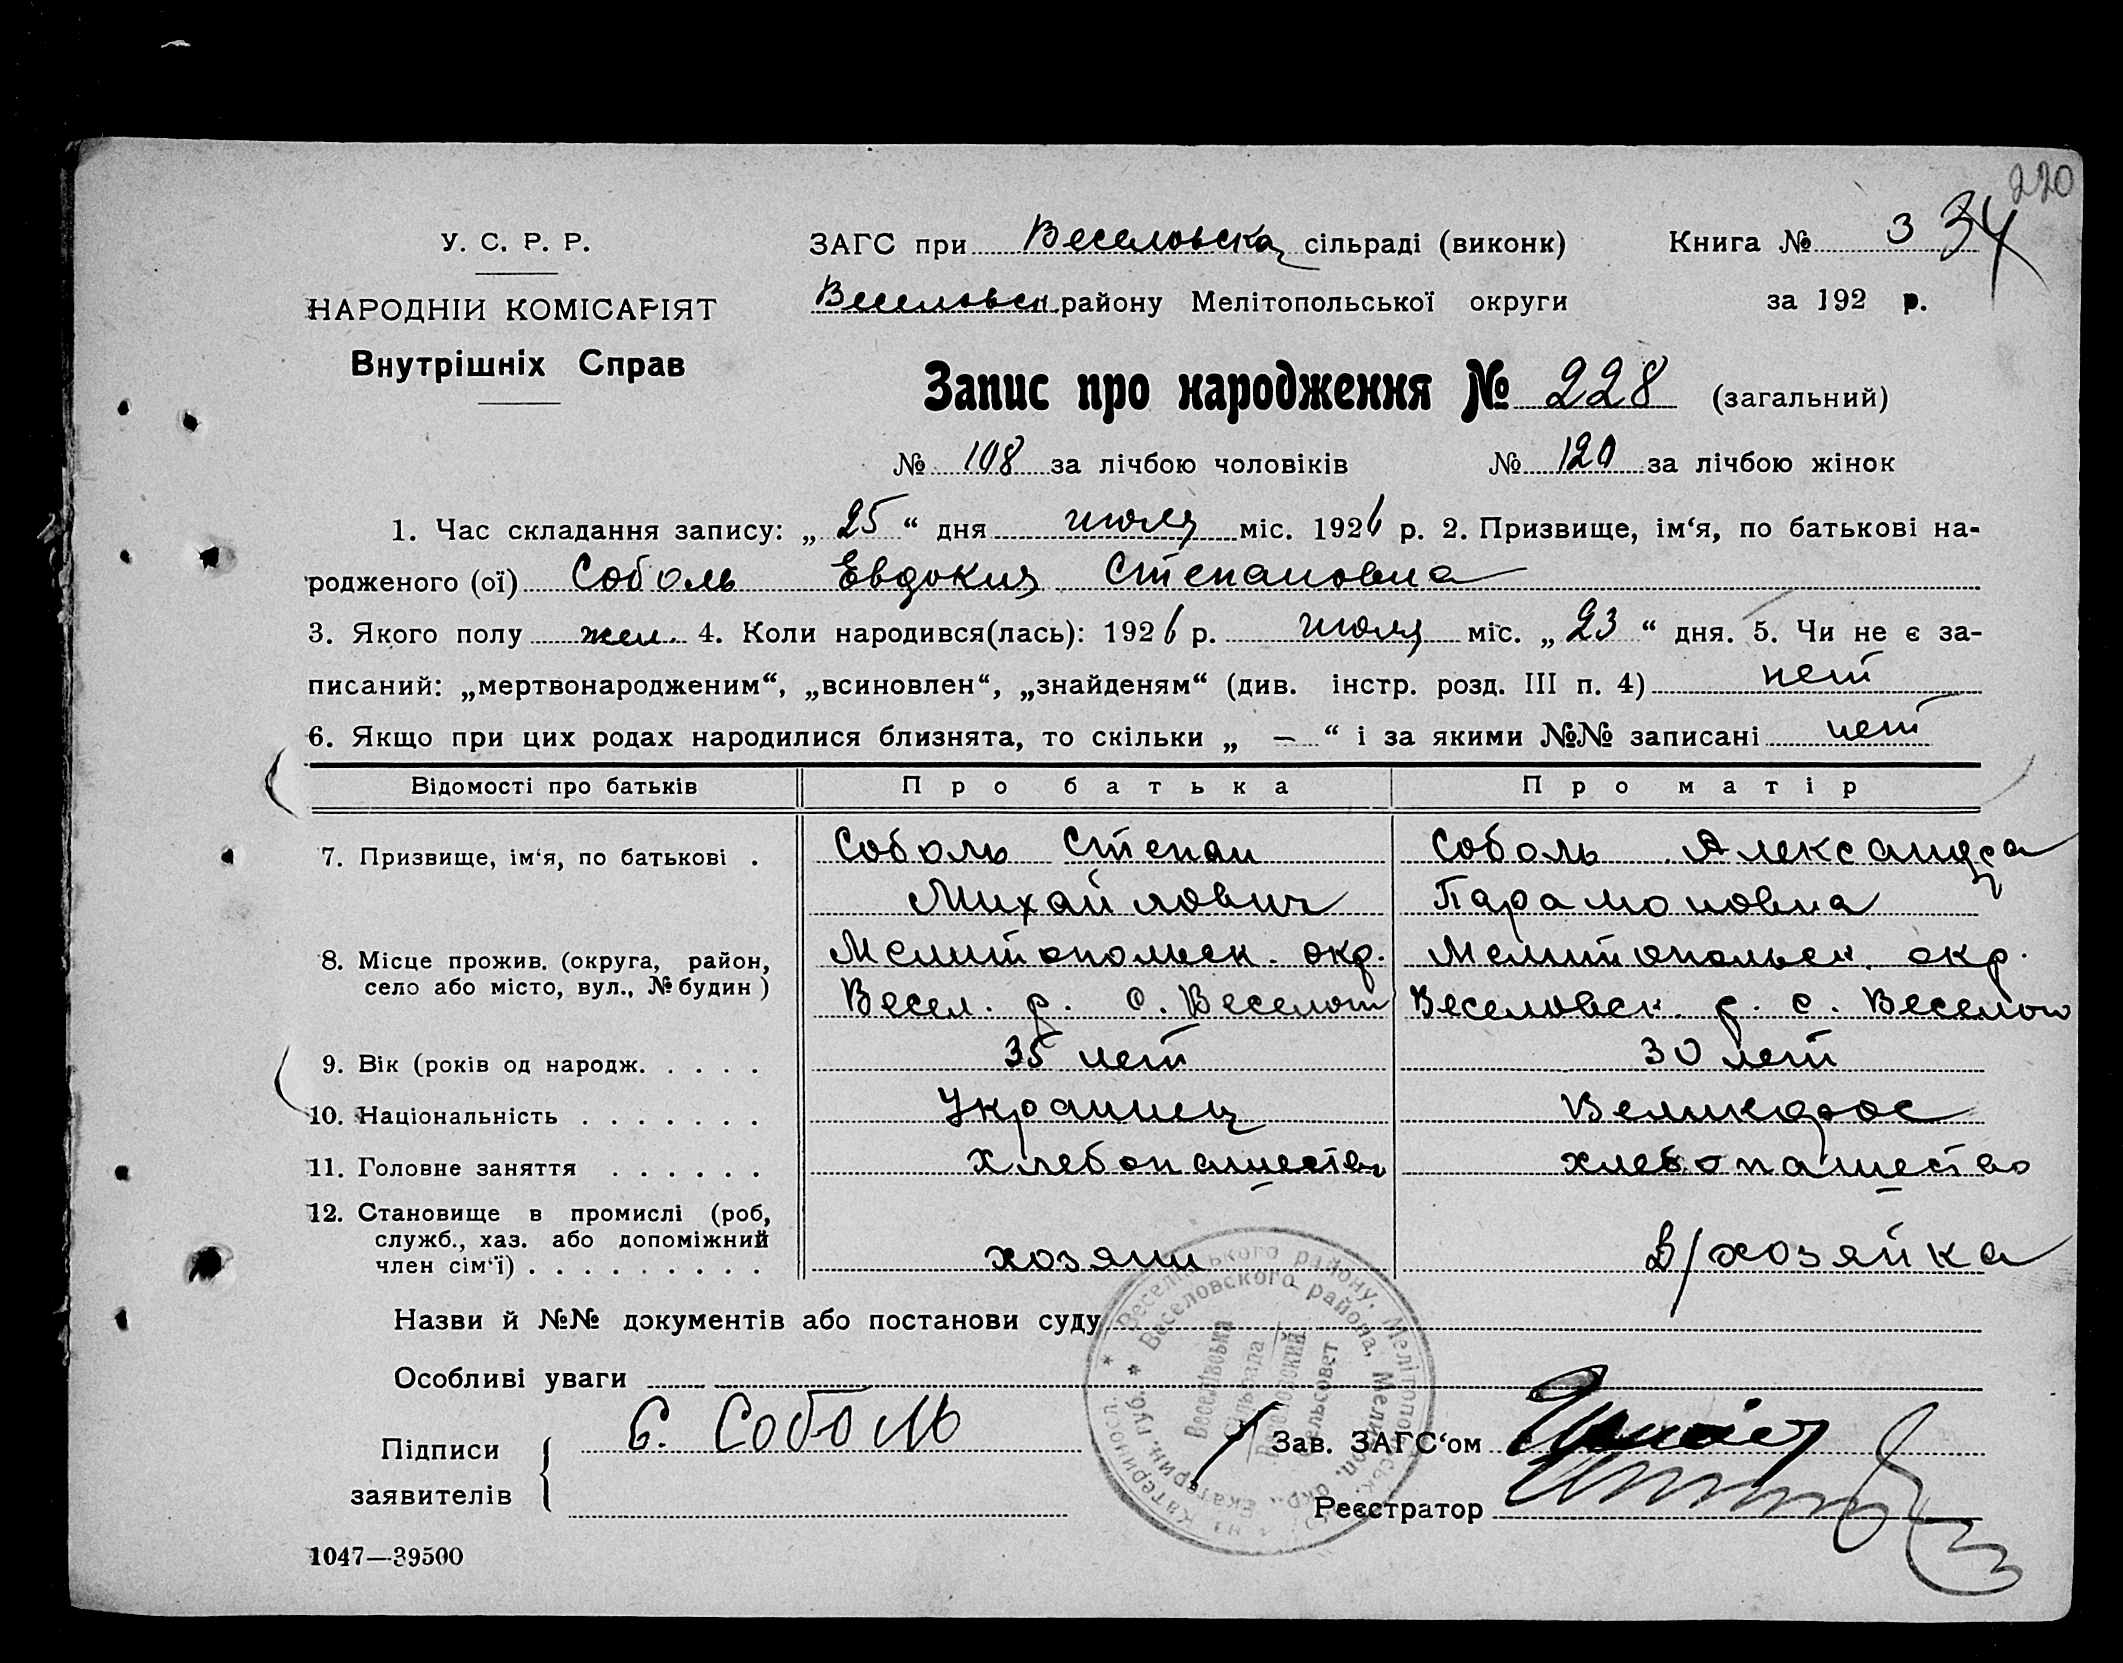 220
У. С. Р. Р.
ЗАГС при Веселовска сільраді (виконк)
Книга № 3 34
НАРОДНІЙ КОМІСАРІЯТ
Веселовск. району Мелітопольської округи
за 192 р.
Внутрішніх Справ
Запис про народження № 228 (загальний)
№ 108 за лічбою чоловіків № 120 за лічбою жінок
1. Час складання запису: „ 25 “ дня июля міс. 1926 р. 2. Призвище, ім‘я, по батькові на-
родженого (ої) Соболь Евдокия Степановна
3. Якого полу жен 4. Коли народився(лась): 1926 р. июля міс. „ 23 “ дня. 5. Чи не є за-
писаний: „мертвонародженим“, „всиновлен“, „знайденям“ (див. інстр. розд. III п. 4) нет
6. Якщо при цих родах народилися близнята, то скільки „ — “ і за якими №№ записані нет
Відомості про батьків Про батька Про матір
7. Призвище, ім‘я, по батькові . Соболь Степан Соболь Александра
Михайлович Парамоновна
8. Місце прожив. (округа, район, Мелитопольск. окр. Мелитопольск. окр.
село або місто, вул., № будин) Весел. р. с. Веселое Веселовск. р. с. Веселого
9. Вік (років од народж. . . . . . 35 лет 30 лет
10. Національність . . . . . . . Украинец Великорос
11. Головне заняття . . . . . . Хлебопашество хлебопашество
12. Становище в промислі (роб,
служб., хаз. або допоміжний
член сім‘ї) . . . . . . . . . хозяин Д/хозяйка
Назви й №№ документів або постанови суду
Особливі уваги
Підписи
заявителів
С. Соболь
Зав. ЗАГС‘ом
Реєстратор
Веселівського району, Мелітопольськ.
Веселовского района, Мелитоп. окр., Екатерин. губ.
Веселівська
Сільрада
Веселовский
Сельсовет
1047—39500